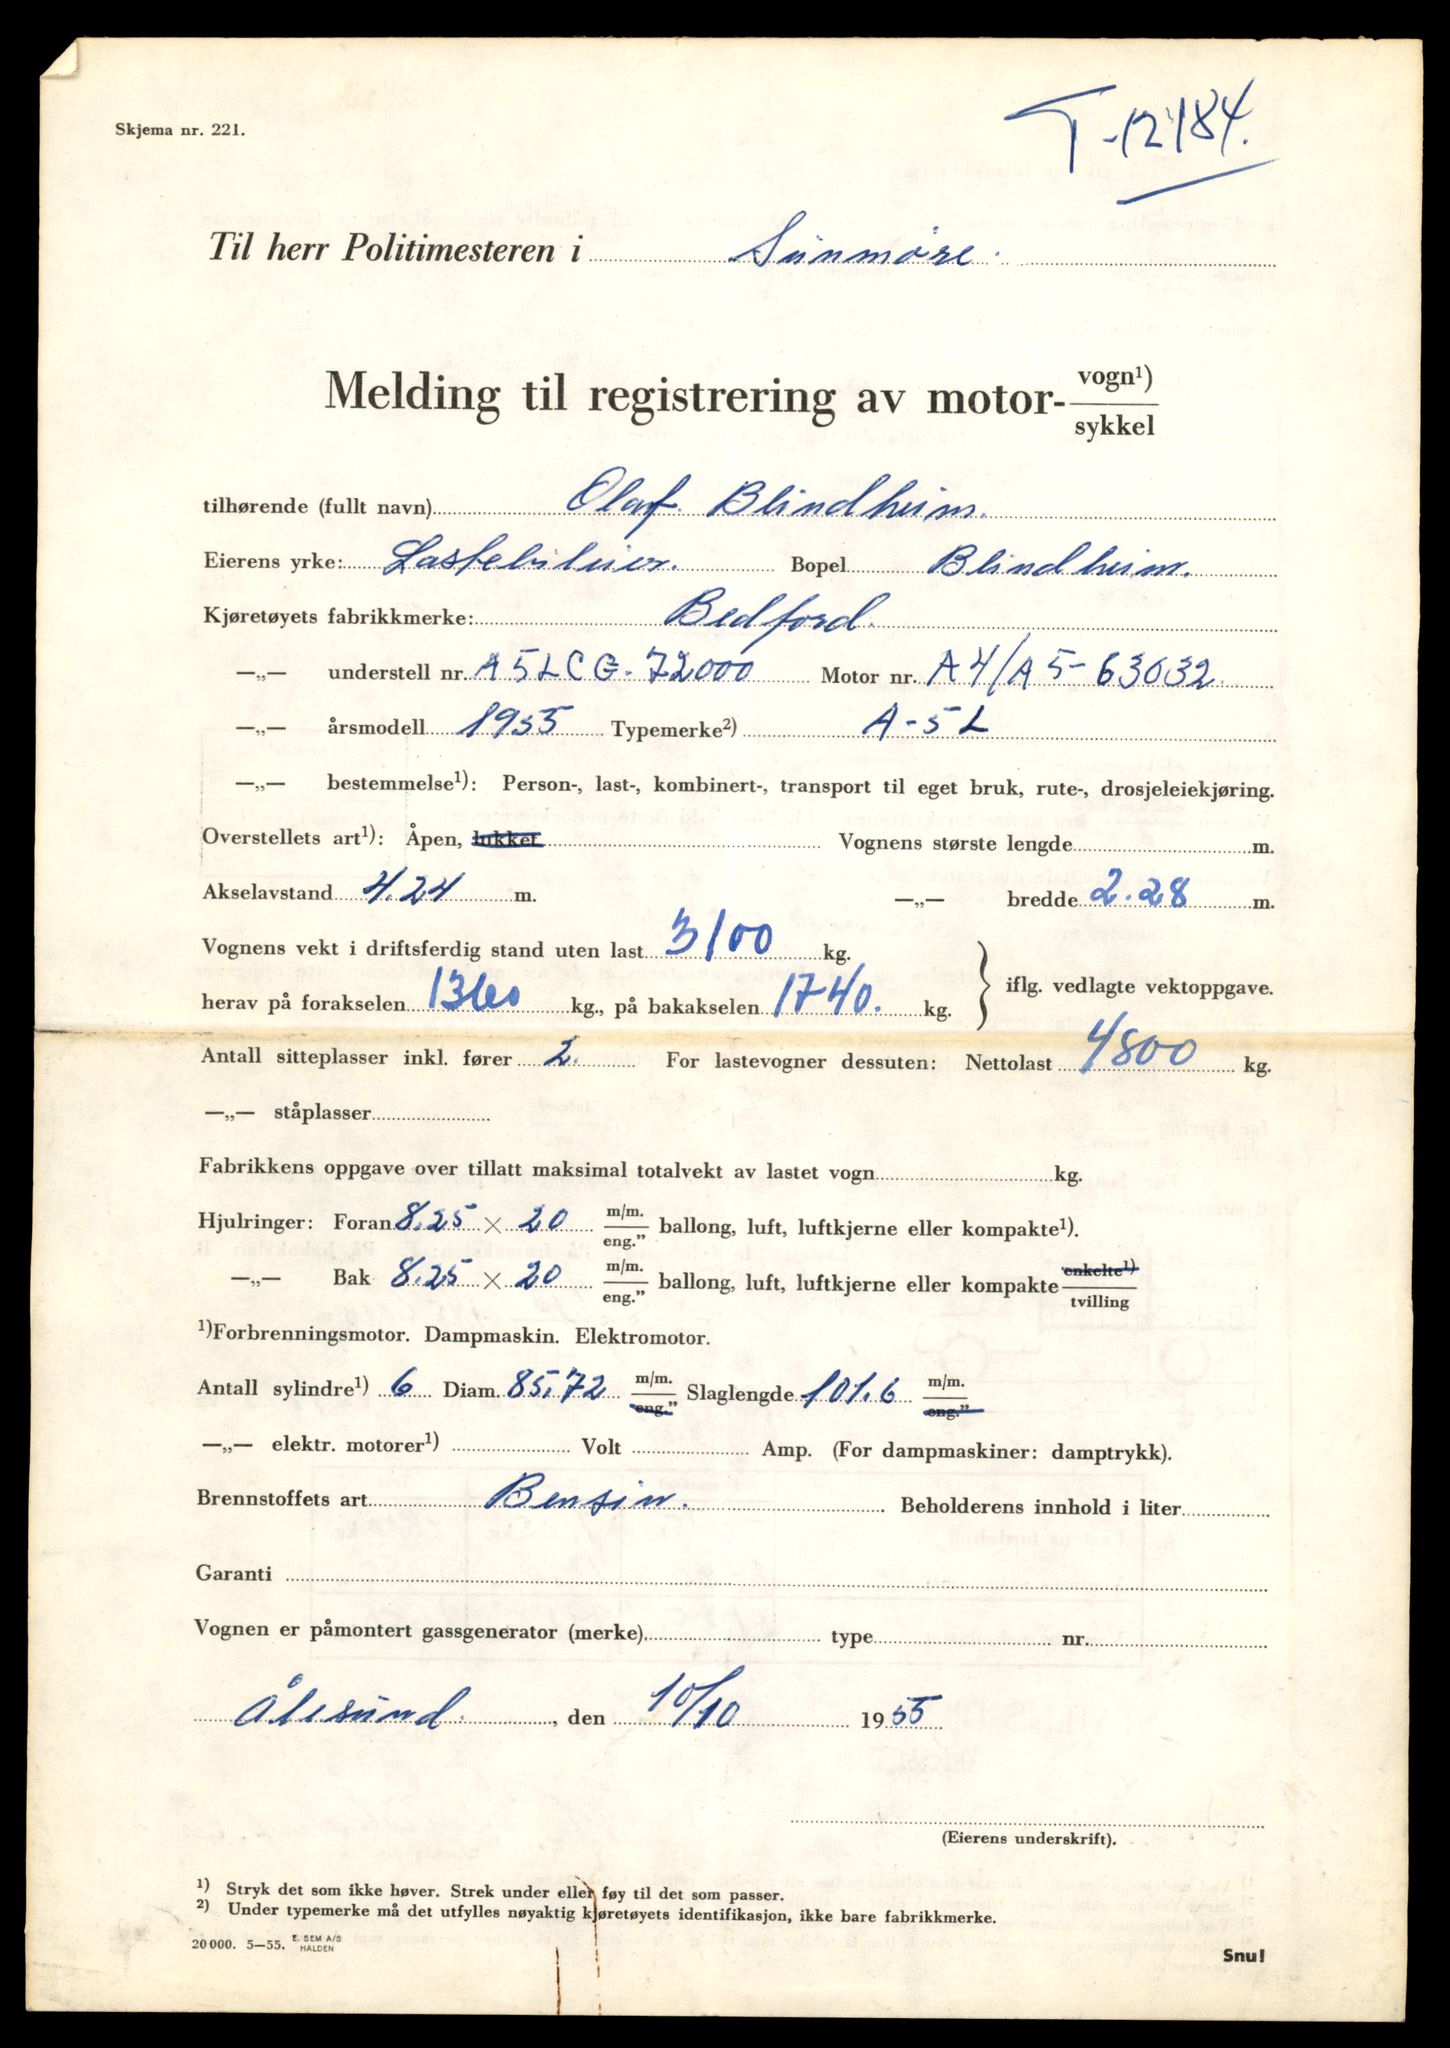 T-12184.
Skjema nr. 221.
Til herr Politimesteren i Sunmøre.
Melding til registrering av motor- vogn¹) / sykkel
tilhørende (fullt navn) Olaf Blindheim.
Eierens yrke: Lastebileier. Bopel Blindheim.
Kjøretøyets fabrikkmerke: Bedford.
—„— understell nr. A5LCG-72000 Motor nr. A4/A5-63032
—„— årsmodell 1955 Typemerke²) A-5L
—„— bestemmelse¹): Person-, last-, kombinert-, transport til eget bruk, rute-, drosjeleiekjøring.
Overstellets art¹): Åpen, lukket Vognens største lengde m.
Akselavstand 4.24 m. —„— bredde 2.28 m.
Vognens vekt i driftsferdig stand uten last 3100 kg.
herav på forakselen 1360 kg., på bakakselen 1740. kg. } iflg. vedlagte vektoppgave.
Antall sitteplasser inkl. fører 2. For lastevogner dessuten: Nettolast 4800 kg.
—„— ståplasser
Fabrikkens oppgave over tillatt maksimal totalvekt av lastet vogn kg.
Hjulringer: Foran 8.25 × 20 m/m. / eng.” ballong, luft, luftkjerne eller kompakte¹).
—„— Bak 8.25 × 20 m/m. / eng.” ballong, luft, luftkjerne eller kompakte enkelte¹) / tvilling
¹)Forbrenningsmotor. Dampmaskin. Elektromotor.
Antall sylindre¹) 6 Diam. 85.72 m/m. / eng.” Slaglengde 101.6 m/m. / eng.”
—„— elektr. motorer¹) Volt Amp. (For dampmaskiner: damptrykk).
Brennstoffets art Bensin. Beholderens innhold i liter
Garanti
Vognen er påmontert gassgenerator (merke) type nr.
Ålesund. , den 10/10 1955
(Eierens underskrift).
¹) Stryk det som ikke høver. Strek under eller føy til det som passer.
²) Under typemerke må det utfylles nøyaktig kjøretøyets identifikasjon, ikke bare fabrikkmerke.
20 000. 5—55. E. SEM A/S HALDEN
Snu!